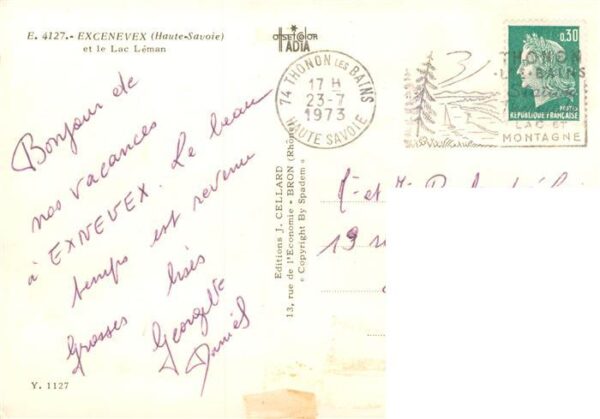 E. 4127.- EXCENEVEX (Haute-Savoie)
et le Lac Léman
OFFSET COLOR
IADIA
74 THONON LES BAINS
17 H
23-7
1973
HAUTE SAVOIE
THONON
LES-BAINS
LAC ET
MONTAGNE
0,30
POSTES
REPUBLIQUE FRANÇAISE
Bonjour de
nos vacances
à EXNEVEX. Le beau
temps est revenu
Grosses bises
Georgette
Daniel
Editions J. CELLARD
13, rue de l'Economie - BRON (Rhône)
« Copyright By Spadem »
et
19
Y. 1127